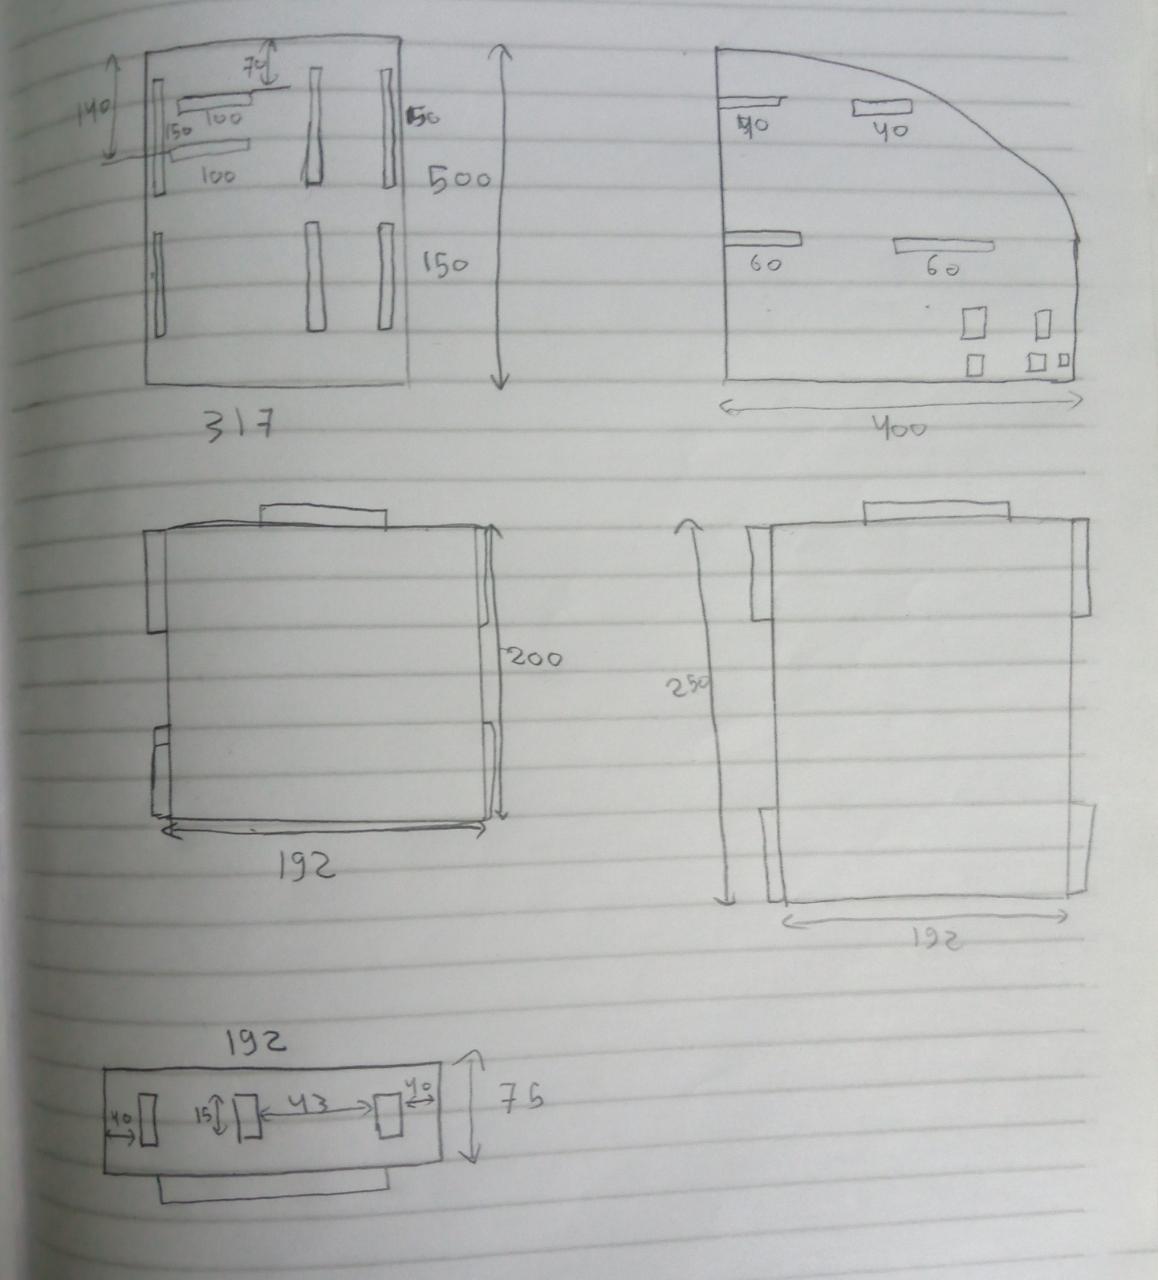 70
140
100
150
100
50
500
150
317
40
40
60
60
400
200
192
250
192
192
40
15
43
40
75